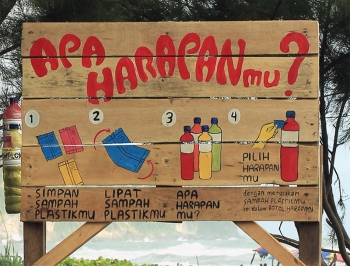 APA
HARAPANMU?
1 2 3 4
PILIH
HARAPAN
MU
SIMPAN
SAMPAH
PLASTIKMU
LIPAT
SAMPAH
PLASTIKMU
APA
HARAPAN
MU?
dengan memasukan
SAMPAH PLASTIKMU
ke dalam BOTOL HARAPAN